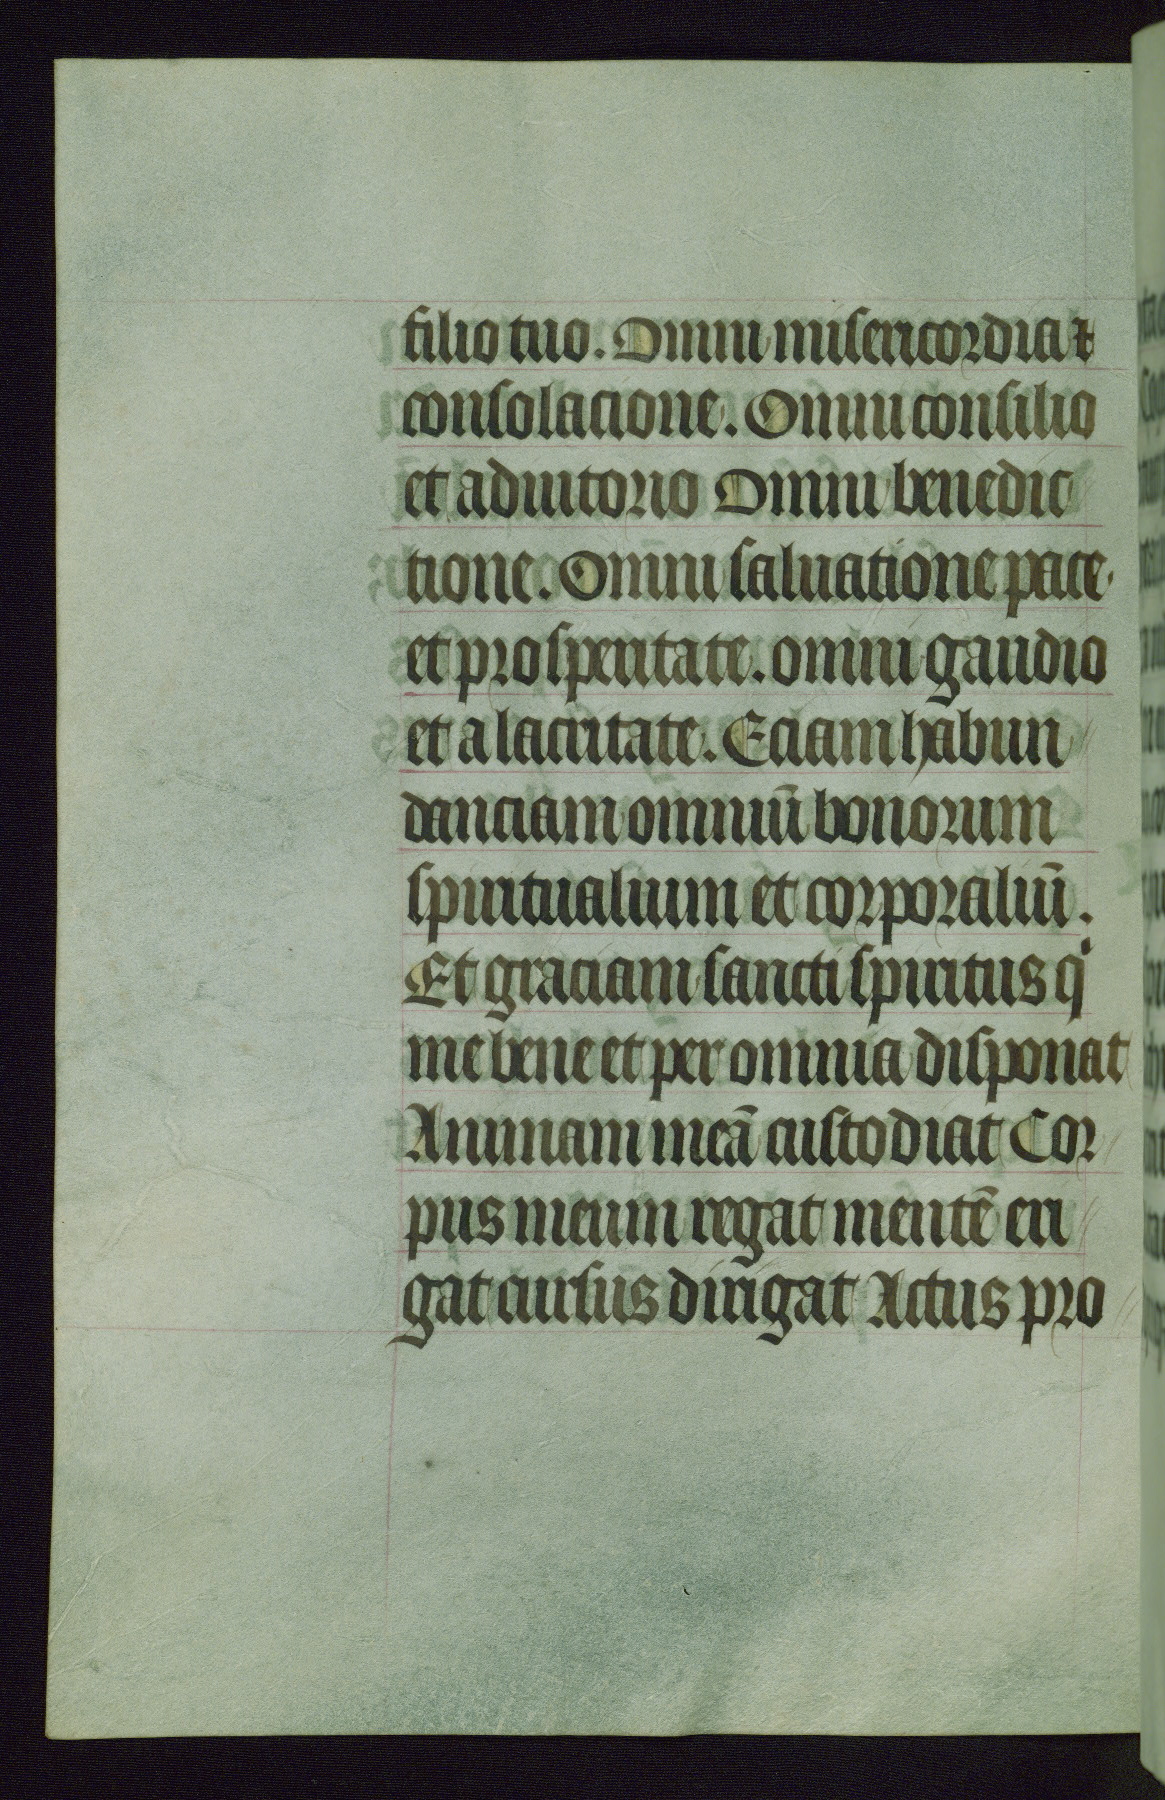 filio tuo. Omni misericordia ⁊
consolacione. Omni consilio
et adiutorio Omni benedic
tione. Omni saluatione pace.
et prosperitate. omni gaudio
et alacritate. Eciam habun
danciam omniū bonorum
spiritualium et corporaliū.
Et graciam sancti spiritus qͥ
me bene et per omnia disponat
Animam meā custodiat Cor
pus meum regat mentē eri
gat cursus dirigat Actus pro